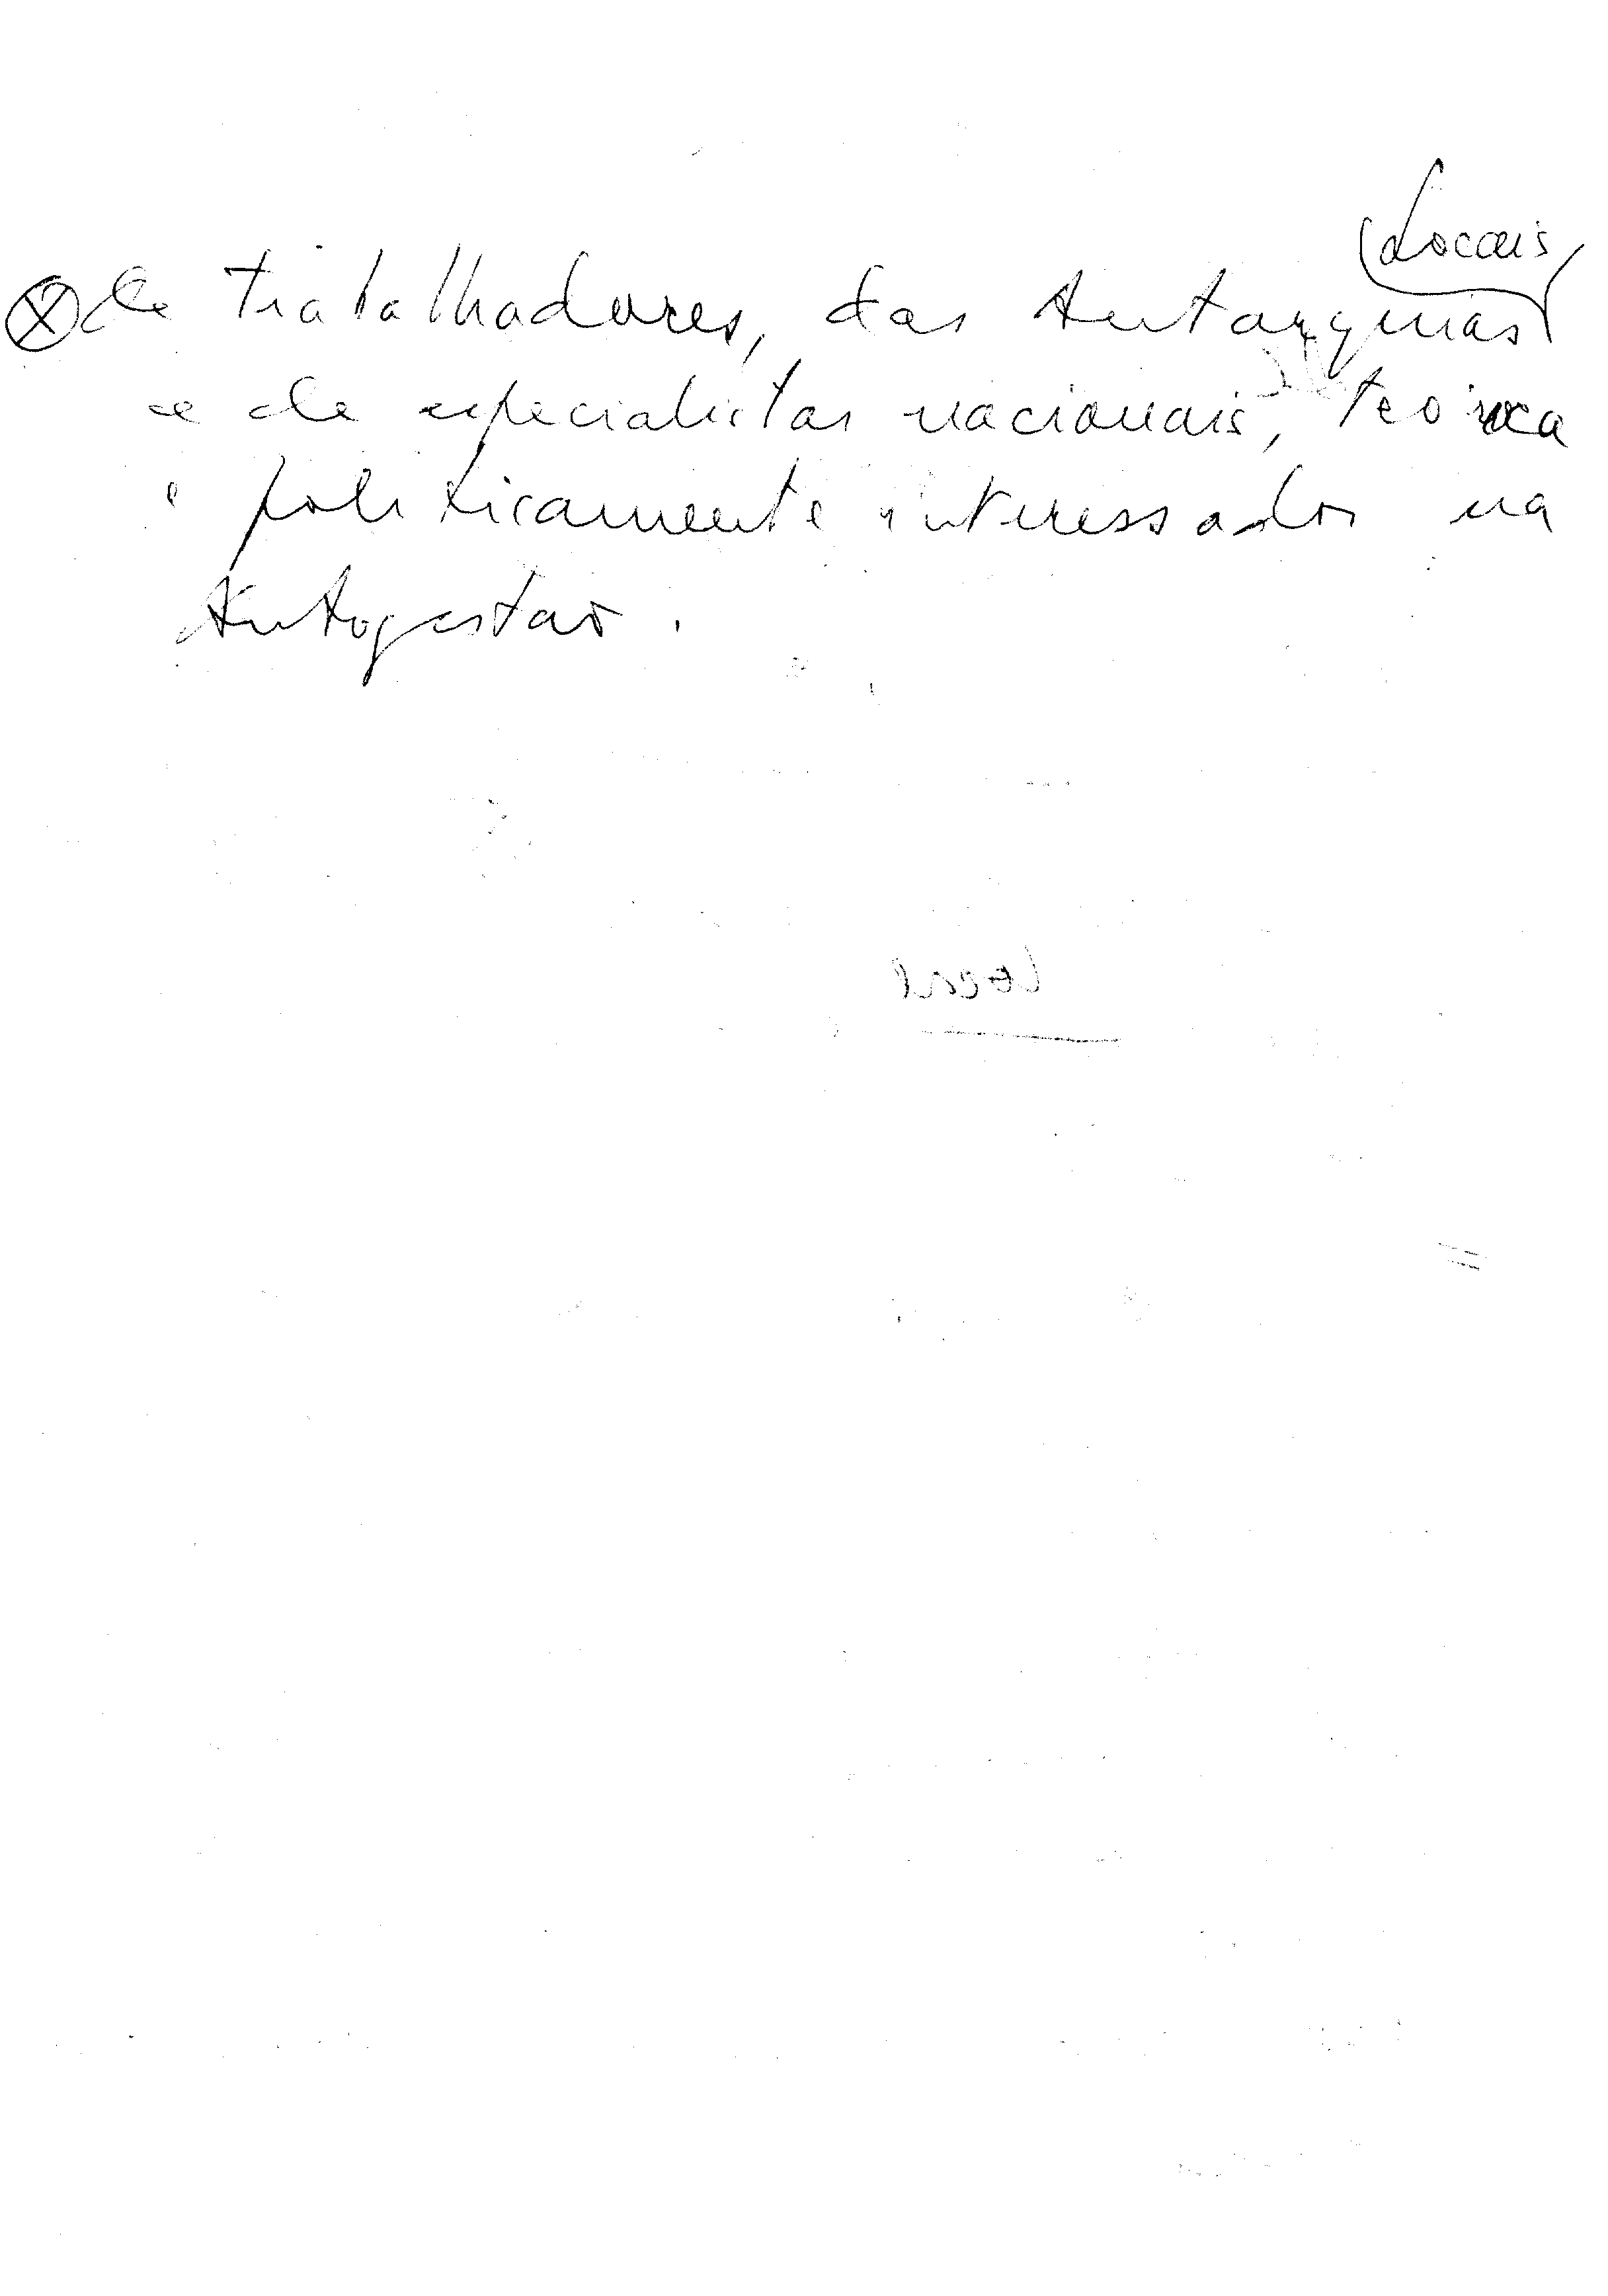 Locais
ⓧ de trabalhadores, das Autarquias
e de especialistas nacionais, teórica
e politicamente interessados na
Autogestão.